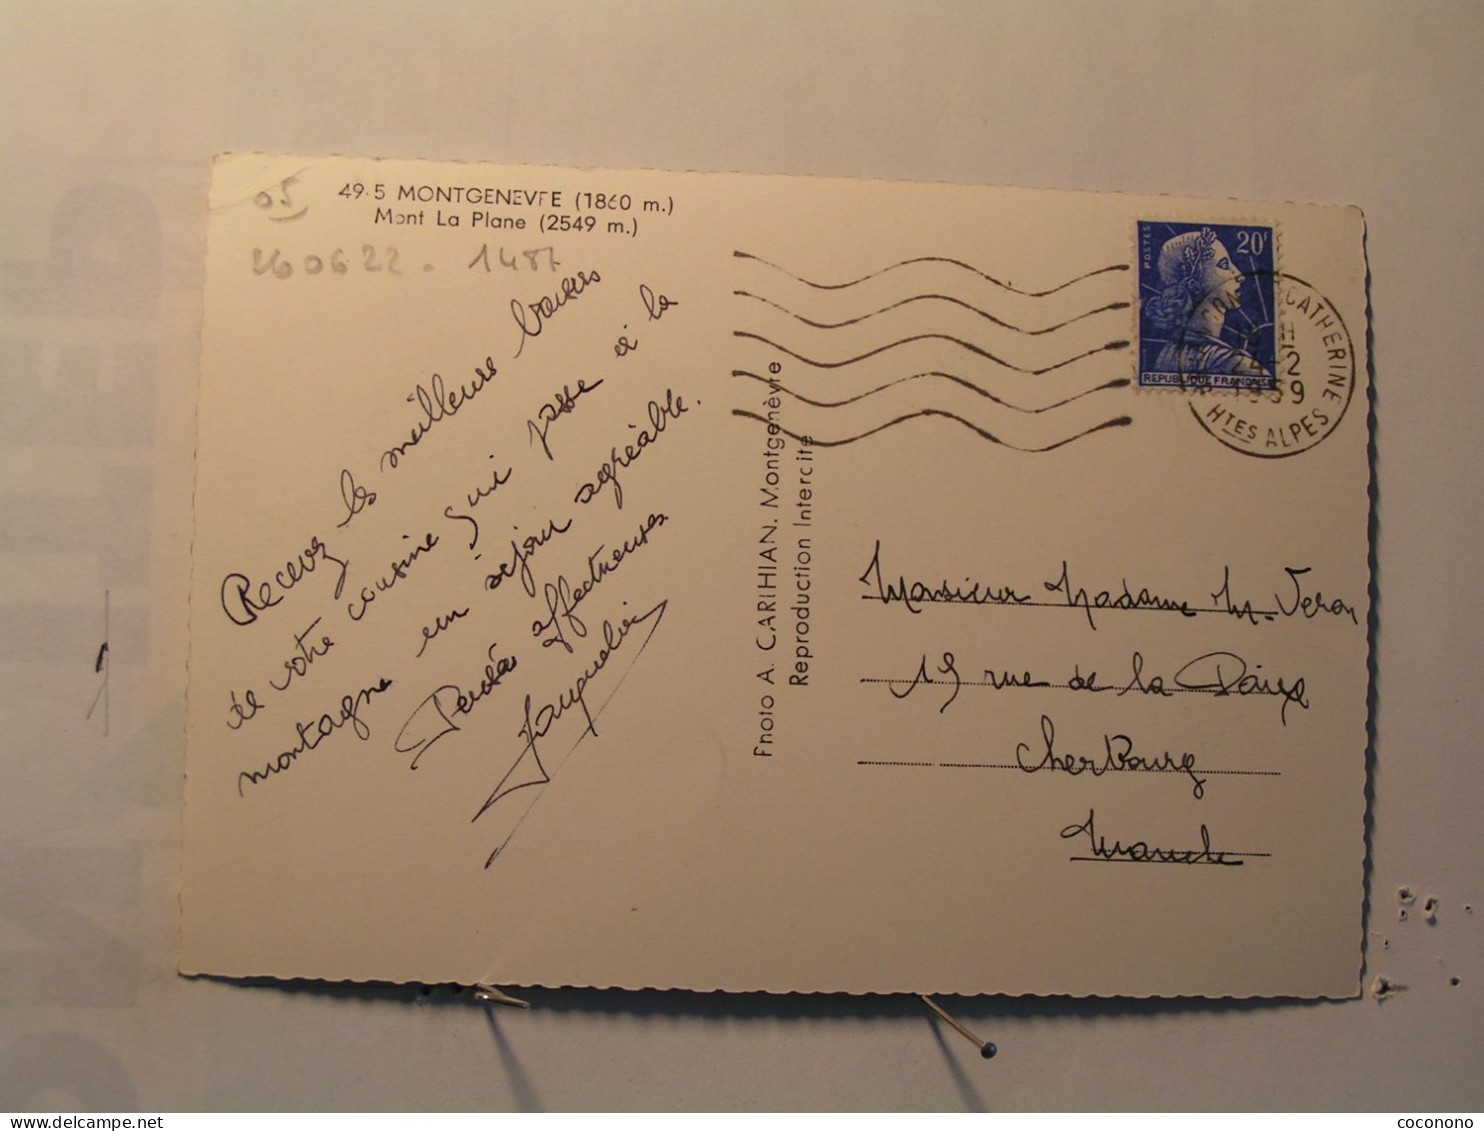 05
49.5 MONTGENEVRE (1860 m.)
Mont La Plane (2549 m.)
260622 - 1487
Recevez les meilleure baisers
de votre cousine qui passe à la
montagne un séjour agréable.
Pensées affectueuses
Jacqueline
Photo A. CARIHIAN. Montgenèvre
Reproduction Intercité
POSTES
20F
REPUBLIQUE FRANÇAISE
CATHERINE
24-2
1959
HTES ALPES
Monsieur Madame M. Veron
15 rue de la Paix
Cherbourg
Manche
coconono